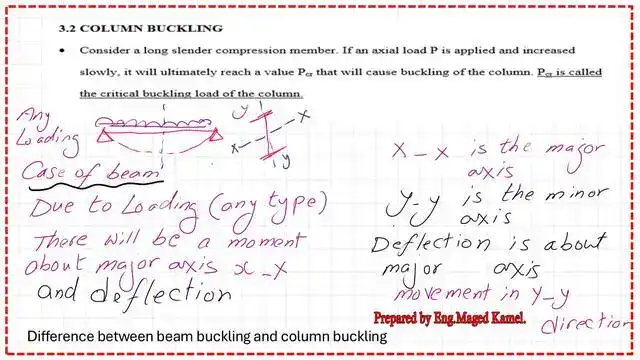 3.2 COLUMN BUCKLING
• Consider a long slender compression member. If an axial load P is applied and increased
slowly, it will ultimately reach a value Pcr that will cause buckling of the column. Pcr is called
the critical buckling load of the column.
Any
Loading
y
X
X
y
Case of beam
Due to Loading (any type)
There will be a moment
about major axis x-x
and deflection
X-X is the major
axis
y-y is the minor
axis
Deflection is about
major axis
movement in y-y
direction
Prepared by Eng.Maged Kamel.
Difference between beam buckling and column buckling